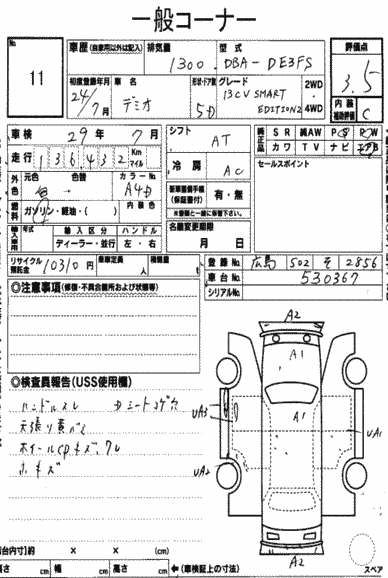 一般コーナー
No. 11
車歴(自家用以外は記入) 排気量 1300 型式 DBA-DE3FS 評価点 3.5
初度登録年月 24/7月 車名 デミオ 形状・ドア数 5D グレード 13CV SMART EDITION2 2WD・4WD 内装補助評価 C
車検 29年7月 シフト AT 純正品 SR 純AW PS PW
カワ TV ナビ エアB
走行 136,432 Km マイル 冷房 AC セールスポイント
外色 元色 白 → 色替 カラーNo. A4D 新車整備手帳(保証書付) 有・無
※登録と一緒に保管下さい。
燃料 ガソリン・軽油・( ) 内装色 名義変更期限
輸入車用 年式 輸入区分 ハンドル
ディーラー・並行 左・右 月 日
リサイクル預託金 10310円 乗車定員 人 積載量 t 登録No. 広島 502 そ 2856
車台No. 530367
シリアルNo.
◎注意事項(修復・不具合箇所および状態等)
A2
A1
◎検査員報告(USS使用欄)
ハンドルスレ Dシートコゲ穴
天張り裏ガレ
ホイールcpキズ、ワレ
小キズ
UA3
A1
UA1
UA2
A2
荷台内寸]約 × × (cm)
長さ cm 幅 cm 高さ cm ←(車検証上の寸法) スペア